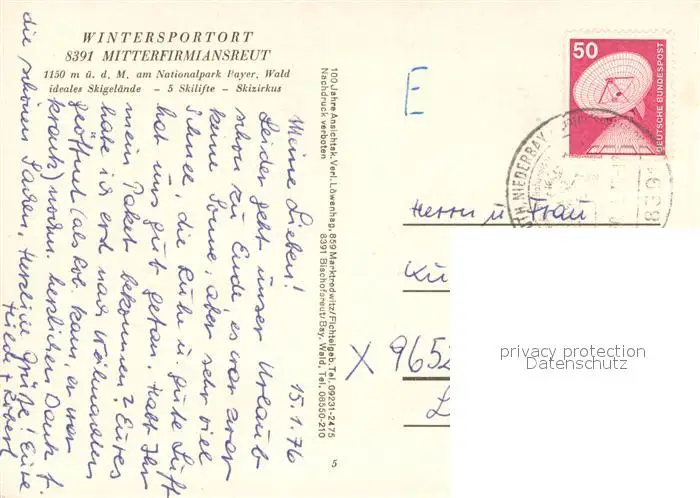 WINTERSPORTORT
8391 MITTERFIRMIANSREUT
1150 m ü. d. M. am Nationalpark Bayer. Wald
ideales Skigelände - 5 Skilifte - Skizirkus
15.1.76
Meine Lieben!
Leider geht unser Urlaub
schon zu Ende, es war zwar
keine Sonne, aber sehr viel
Schnee, die Ruhe u. gute Luft
hat uns gut getan. Habt Ihr
mein Paket bekommen? Eures
habe ich erst nach Weihnachten
geöffnet (als Rob. kam, er war
krank) nochm. herzlichen Dank f.
die schönen Sachen, Herzliche Grüße! Eure
+ Robert
100 Jahre Ansichtsk.Verl. Löwenhag, 859 Marktredwitz/Fichtelgeb. Tel. 09231-2475
Nachdruck verboten 8391 Bischofsreut/Bay. Wald, Tel. 08550-210
5
E
50
DEUTSCHE BUNDESPOST
NIEDERBAY
8391
Herrn u Frau
X 9652
privacy protection
Datenschutz